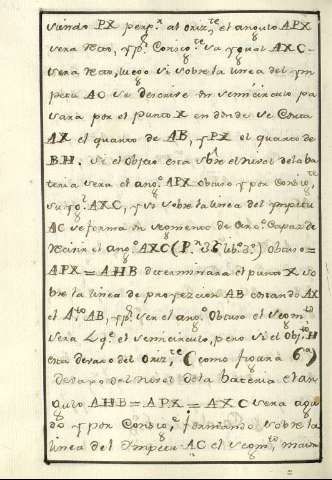 siendo PX perp.r al Oriz.te, el angulo APX
sera recto, y p.r Consig.te su ygual AXC
sera recto, luego si sobre la linea del ym
petu AC se descrive un semicirculo pa
sara por el punto X en donde se Corta
AX el quarto de AB, y PX el quarto de
BH. Si el Objeto esta sobre el nivel de la ba
teria sera el ang.o APX Obtuso y por Consig.te
su yg.l AXC, y si sobre la linea del ympetu
AC se forma un segmento de Circ.o Capaz de
recivir el ang.o AXC (P.n 33 lib.o 3.o) Obtuso =
APX = AHB determinara el punto X so
bre la linea de proyeccion AB estando AX
el 4.to AB, y p.r ser el ang.o Obtuso el segm.to
sera el semicirculo, pero si el Obj.to H
esta devaxo del Oriz.te (como figura 6.a)
devaxo del nivel de la bateria el an
gulo AHB = APX = AXC sera agu
do y por Consig.e formando sobre la
linea del Ympetu AC el segm.to, maior